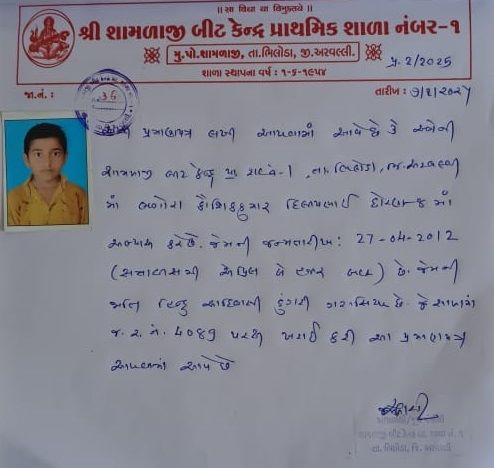 ॥ सा विद्या या विमुक्तये ॥
શ્રી શામળાજી બીટ કેન્દ્ર પ્રાથમિક શાળા નંબર-૧
મુ.પો.શામળાજી, તા.ભિલોડા, જી.અરવલ્લી.
શાળા સ્થાપના વર્ષ : ૧-૬-૧૯૫૪
પ્ર. 2/2025
જા.નં. : 36
તારીખ :
પ્રમાણપત્ર લખી આપવામાં આવે છે કે અત્રેની
શામળાજી બીટ કેન્દ્ર પ્રા શાળા નં-1, તા. ભિલોડા, જિ. અરવલ્લી
માં કૌશિકકુમાર ધોરણ માં
અભ્યાસ કરે છે. જેમની જન્મતારીખ : 27-04-2012
(સત્તાવીસમી એપ્રિલ બે હજાર બાર) છે. જેમની
જાતિ હિન્દુ આદિવાસી ડુંગરી ગરાસિયા છે. જે શાળાના
જ. ર. નં. 4089 પરથી ખરાઈ કરી આ પ્રમાણપત્ર
આપવામાં આવે છે
શામળાજી બીટ કેન્દ્ર પ્રા. શાળા નં. ૧
તા. ભિલોડા, જિ. અરવલ્લી